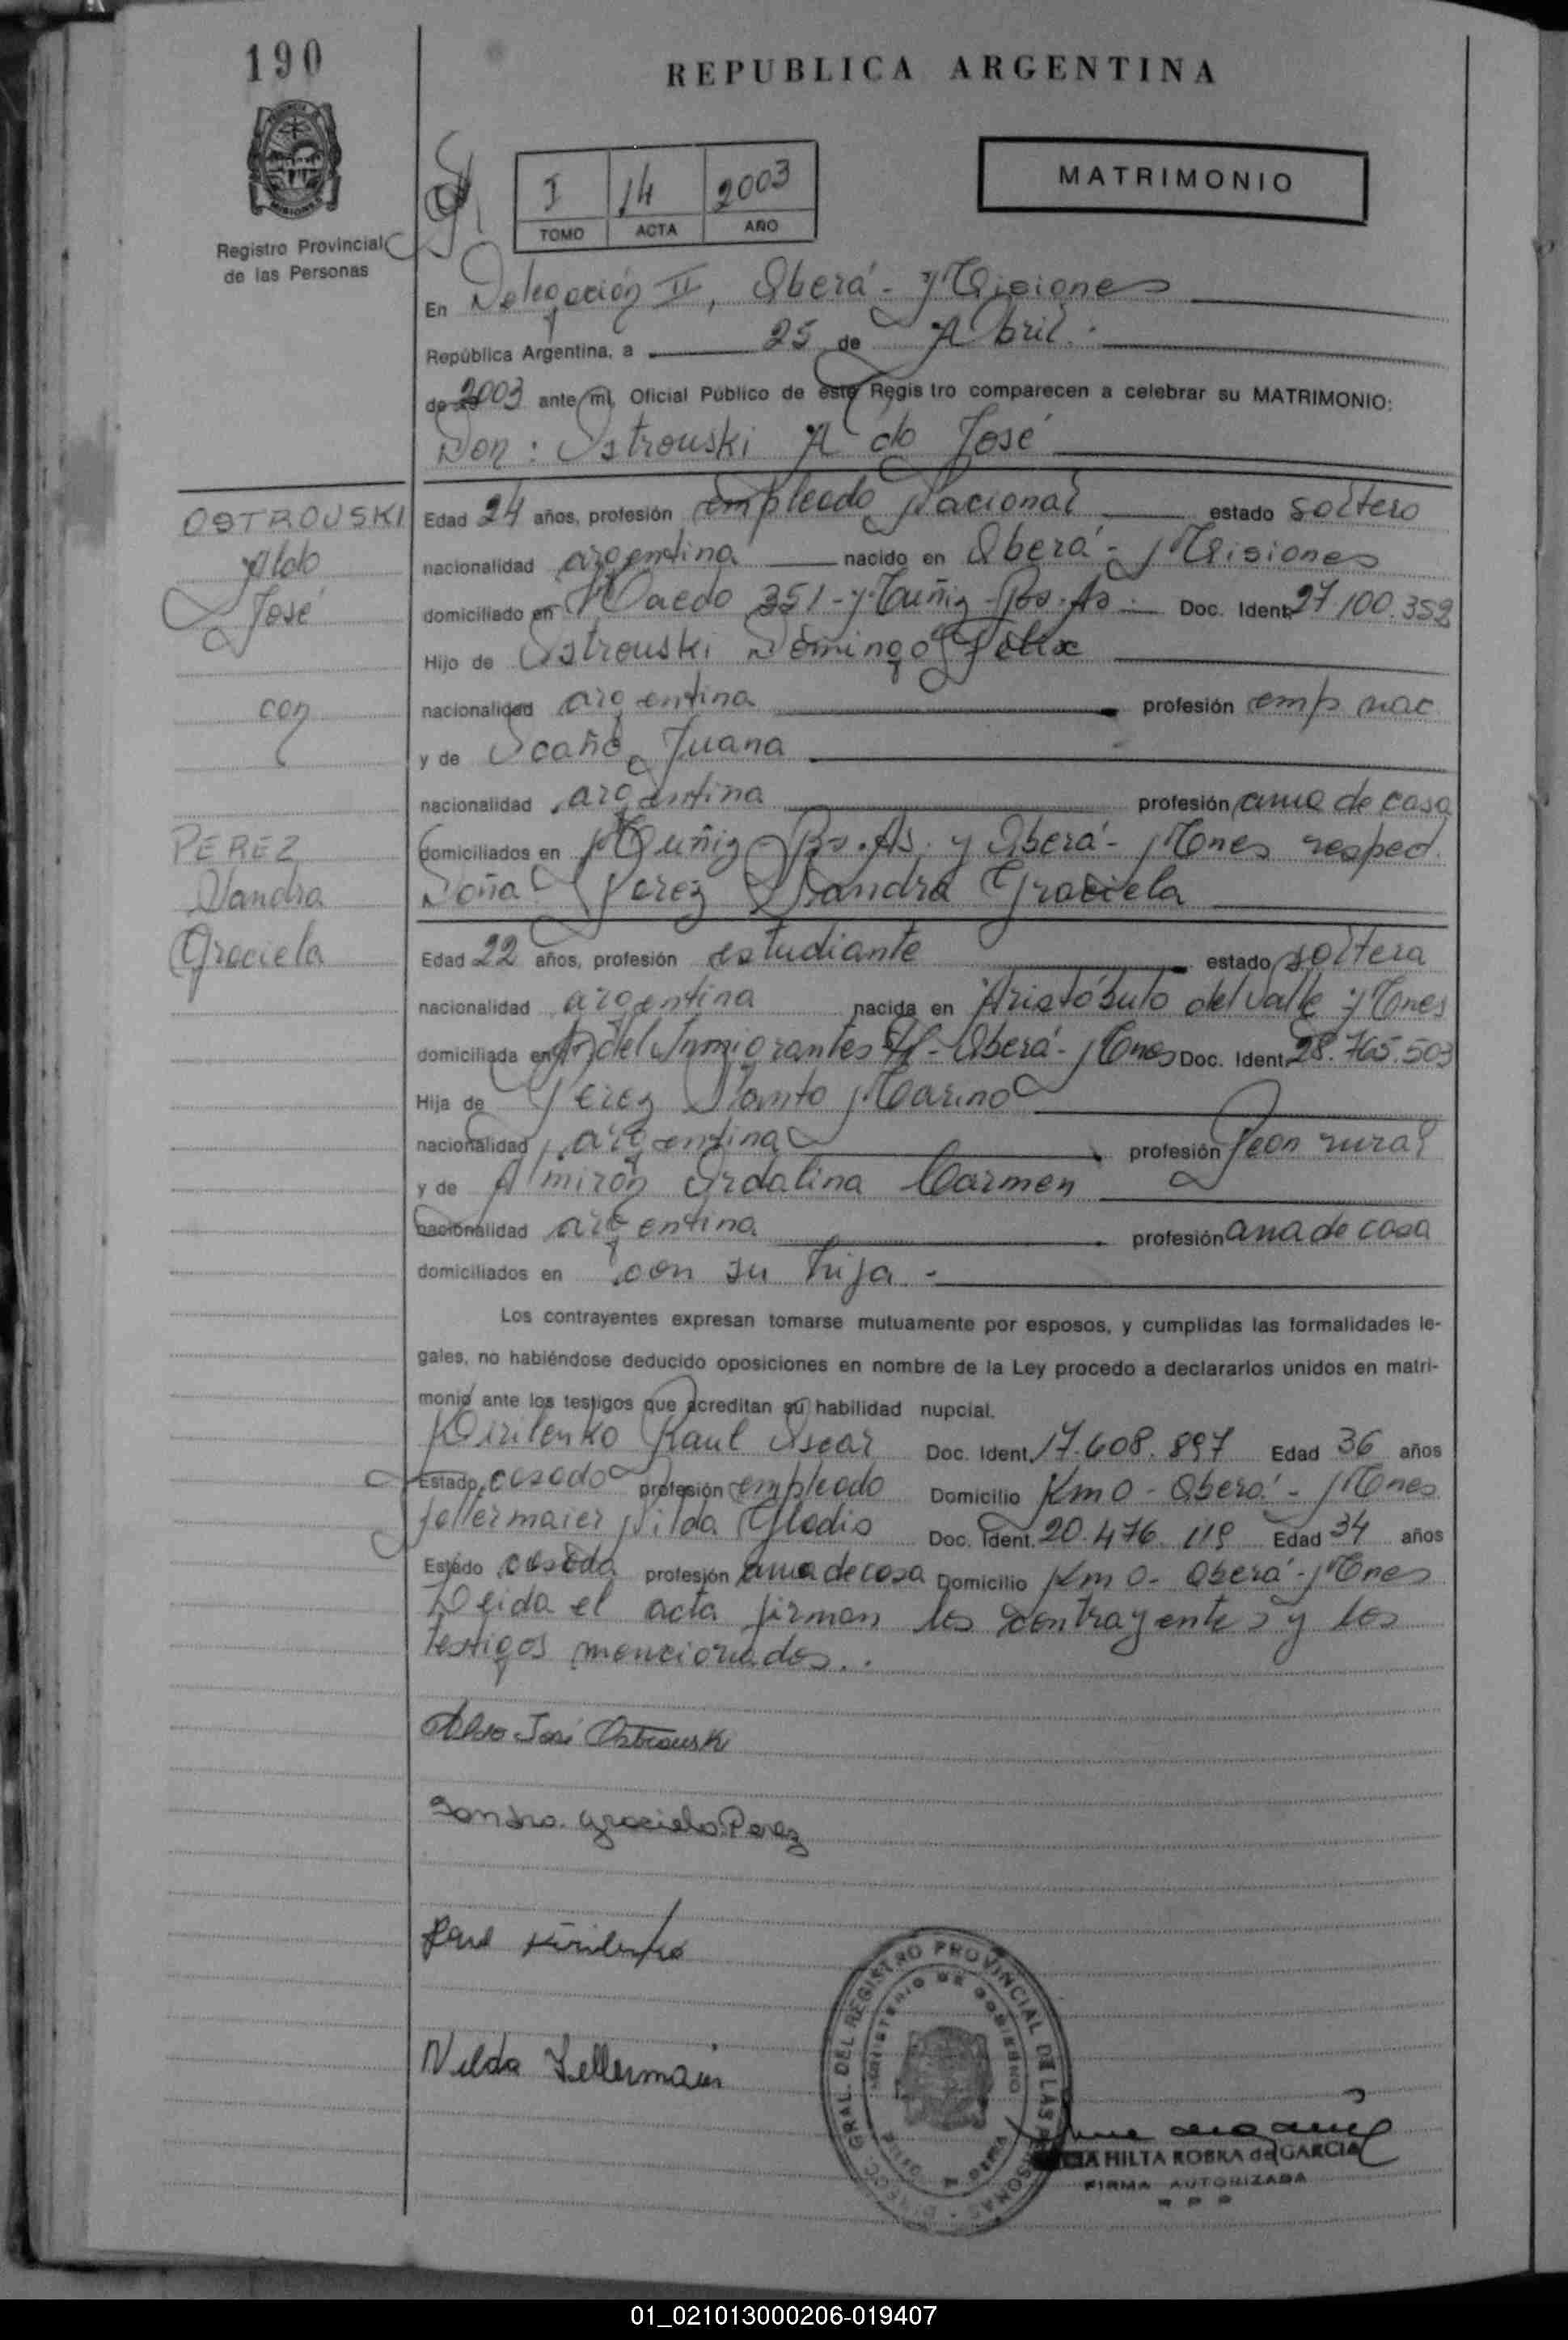 190
REPUBLICA ARGENTINA
MATRIMONIO
I 14 2003
TOMO ACTA AÑO
Registro Provincial
de las Personas
En Delegación II, Oberá - Misiones
República Argentina, a 25 de Abril.
de 2003 ante mi, Oficial Público de este Registro comparecen a celebrar su MATRIMONIO:
Don: Ostrouski Aldo José
OSTROUSKI
Aldo
José
con
PEREZ
Sandra
Graciela
Edad 24 años, profesión empleado Nacional estado soltero
nacionalidad argentina nacido en Oberá - Misiones
domiciliado en 351 - Muñiz - Bs. As. Doc. Ident. 27.100.352
Hijo de Ostrouski Domingo Félix
nacionalidad argentina profesión emp nac
y de Juana
nacionalidad argentina profesión ama de casa
domiciliados en Muñiz - Bs. As. y Oberá - Mnes respect.
Doña Perez Sandra Graciela
Edad 22 años, profesión estudiante estado soltera
nacionalidad argentina nacida en Aristóbulo del Valle - Mnes
domiciliada en Inmigrantes - Oberá - Mnes Doc. Ident. 28.765.503
Hija de Perez Santo Marino
nacionalidad argentina profesión Peon rural
y de Almirón Ordalina Carmen
nacionalidad argentina profesión ama de casa
domiciliados en con su hija -
Los contrayentes expresan tomarse mutuamente por esposos, y cumplidas las formalidades le-
gales, no habiéndose deducido oposiciones en nombre de la Ley procedo a declararlos unidos en matri-
monio ante los testigos que acreditan su habilidad nupcial.
Kirilenko Raul Oscar Doc. Ident. 17.608.897 Edad 36 años
Estado casado profesión empleado Domicilio Km 0 - Oberá - Mnes
Fellermaier Nilda Gladis Doc. Ident. 20.476.119 Edad 34 años
Estado casada profesión ama de casa Domicilio Km 0 - Oberá - Mnes
Leida el acta firman los contrayentes y los
testigos mencionados..
Aldo José Ostrouski
Sandra Graciela Perez
Raul Kirilenko
Nilda Fellermaier
DIRECC. GRAL. DEL REGISTRO PROVINCIAL DE LAS PERSONAS
MINISTERIO DE GOBIERNO
HILTA ROBRA de GARCIA
FIRMA AUTORIZADA
01_021013000206-019407